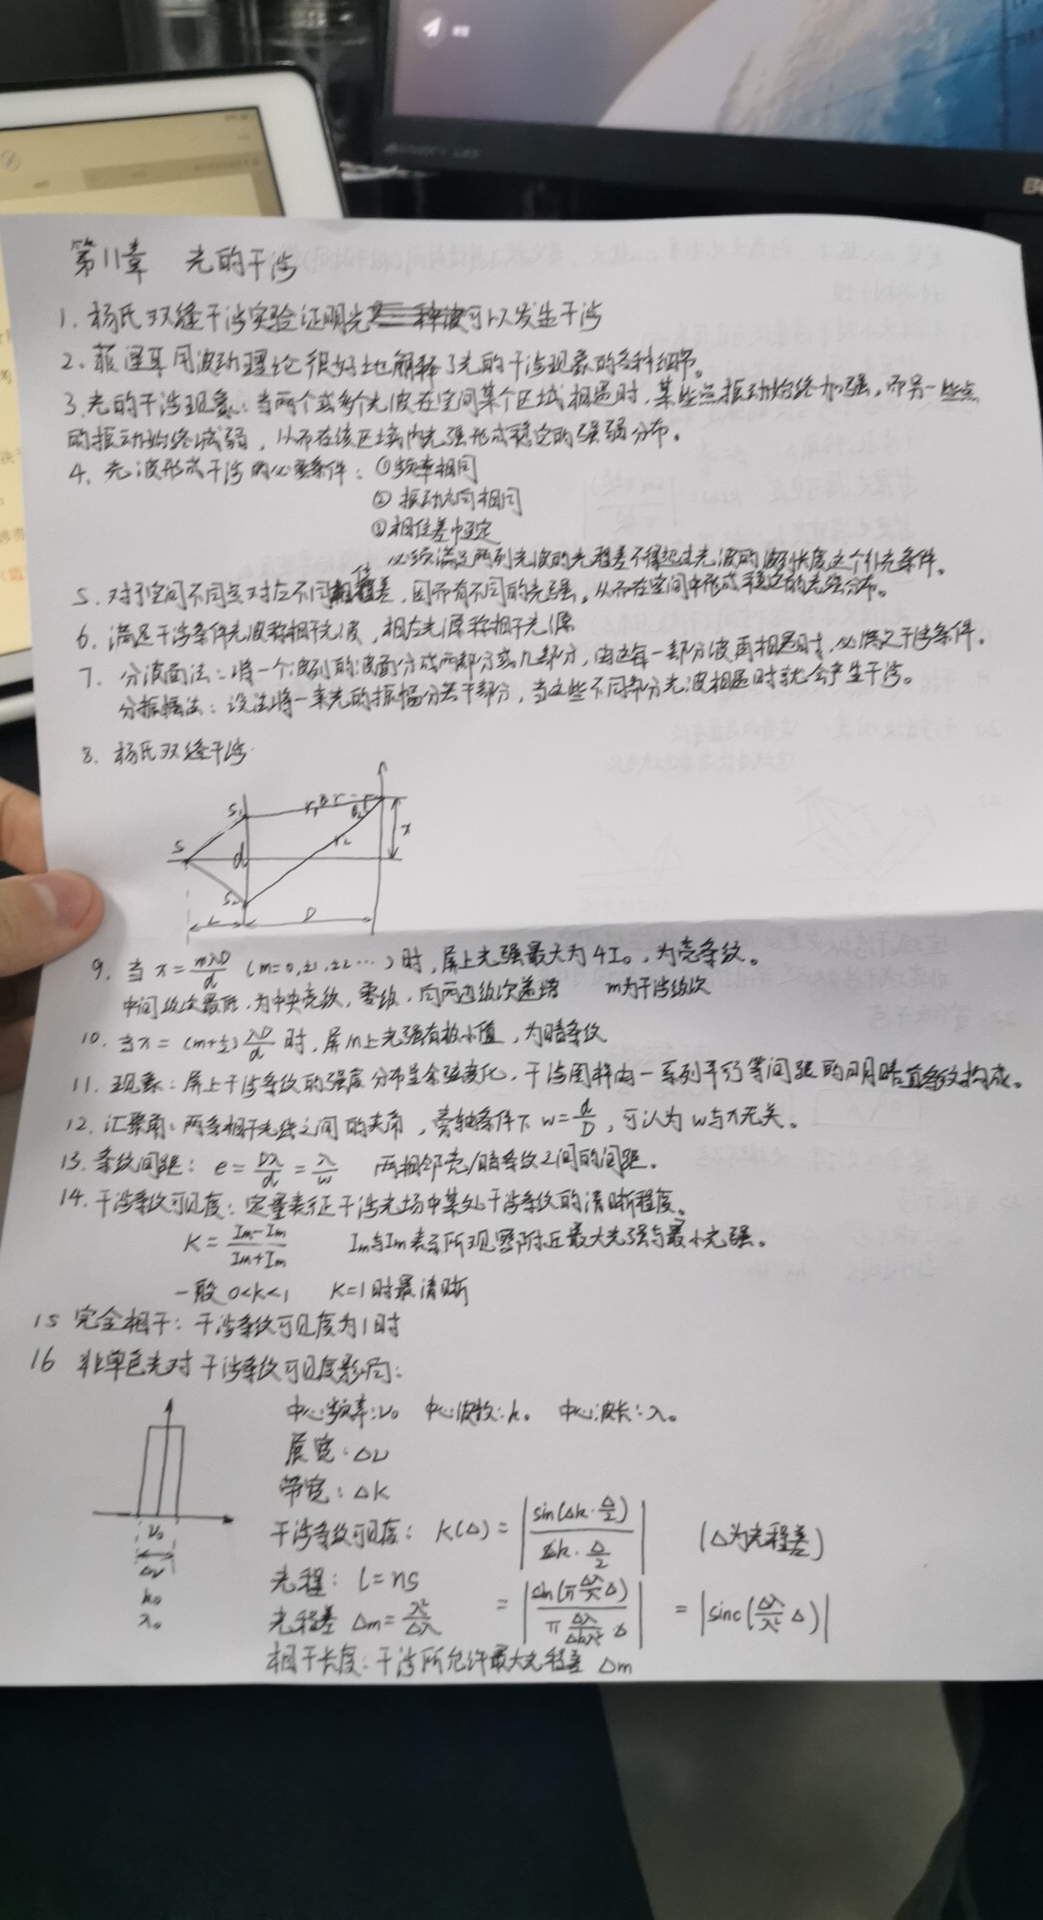 第11章 光的干涉
1. 杨氏双缝干涉实验证明光可以发生干涉
2. 菲涅耳用波动理论很好地解释了光的干涉现象的各种细节。
3. 光的干涉现象：当两个或多个光波在空间某个区域相遇时，某些点振动始终加强，而另一些点
的振动始终减弱，从而在该区域内光强形成稳定的强弱分布。
4. 光波形成干涉的必要条件：①频率相同
②振动方向相同
③相位差恒定
必须满足两列光波的光程差不得超过光波的波列长度这个补充条件。
5. 对于空间不同点对应不同相位差，因而有不同的光强。从而在空间中形成稳定的光强分布。
6. 满足干涉条件光波称相干光波，相应光源称相干光源
7. 分波面法：将一个波列的波面分成两部分或几部分，由这每一部分波再相遇时，必满足干涉条件。
分振幅法：设法将一束光的振幅分若干部分，当这些不同部分光波相遇时就会产生干涉。
8. 杨氏双缝干涉
S S₁ S₂ d r₁ r₂ x
L D
9. 当 x = mλD/d (m=0,±1,±2…) 时，屏上光强最大为4I₀，为亮条纹。
中间级次最低，为中央亮纹，零级，向两边级次递增 m为干涉级次
10. 当x = (m+½) λD/d 时，屏几上光强有极小值，为暗条纹
11. 现象：屏上干涉条纹的强度分布呈余弦变化，干涉图样由一系列平行等间距的明暗直条纹构成。
12. 汇聚角：两条相干光线之间的夹角，旁轴条件下 w = d/D，可认为w与x无关。
13. 条纹间距：e = Dλ/d = λ/w 两相邻亮/暗条纹之间的间距。
14. 干涉条纹可见度：定量表征干涉光场中某处干涉条纹的清晰程度。
K = (Im-Im)/(Im+Im) Im与Im表示所观察附近最大光强与最小光强。
一般 0<k<1 K=1时最清晰
15 完全相干：干涉条纹可见度为1时
16 非单色光对干涉条纹可见度影响：
中心频率：ν₀ 中心波数：k₀ 中心波长：λ₀
展宽：Δν
带宽：Δk
ν₀
Δν
k₀
λ₀
干涉条纹可见度：K(Δ) = |sin(Δk·Δ/2) / (Δk·Δ/2)| (Δ为光程差)
光程：l = ns
光程差 Δm = λ²/Δλ = |sin(π Δλ/λ² Δ) / (π Δλ/λ²·Δ)| = |sinc(Δλ/λ² Δ)|
相干长度：干涉所允许最大光程差 Δm